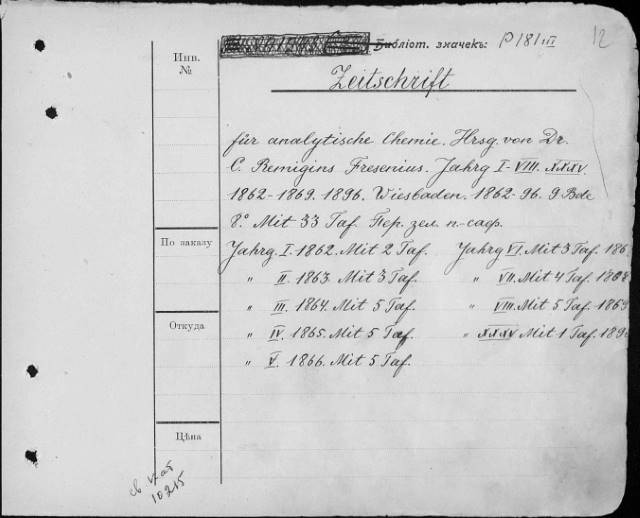 Библіот. значекъ: P 181 III
12
Инв.
№
Zeitschrift
für analytische Chemie. Hrsg. von Dr.
C. Remigius Fresenius. Jahrg I-VIII. XXXV.
1862-1869. 1896. Wiesbaden. 1862-96. 9 Bde
8° Mit 33 Taf. Пер. зел. п.-саф.
По заказу
Jahrg. I. 1862. Mit 2 Taf. Jahrg VI. Mit 3 Taf. 186
" II. 1863. Mit 3 Taf. " VII. Mit 4 Taf. 1868
" III. 1864. Mit 5 Taf. " VIII. Mit 5 Taf. 1869
Откуда
" IV. 1865. Mit 5 Taf. " XXXV Mit 1 Taf. 189
" V. 1866. Mit 5 Taf.
Цѣна
10215